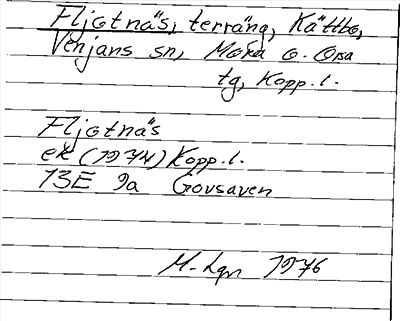 Fljotnäs, terräng, Kättbo,
Venjans sn, Mora o. Orsa
tg, Kopp. l.
Fljotnäs
ek (1974) Kopp. l.
13E 9a Govsaven
1976